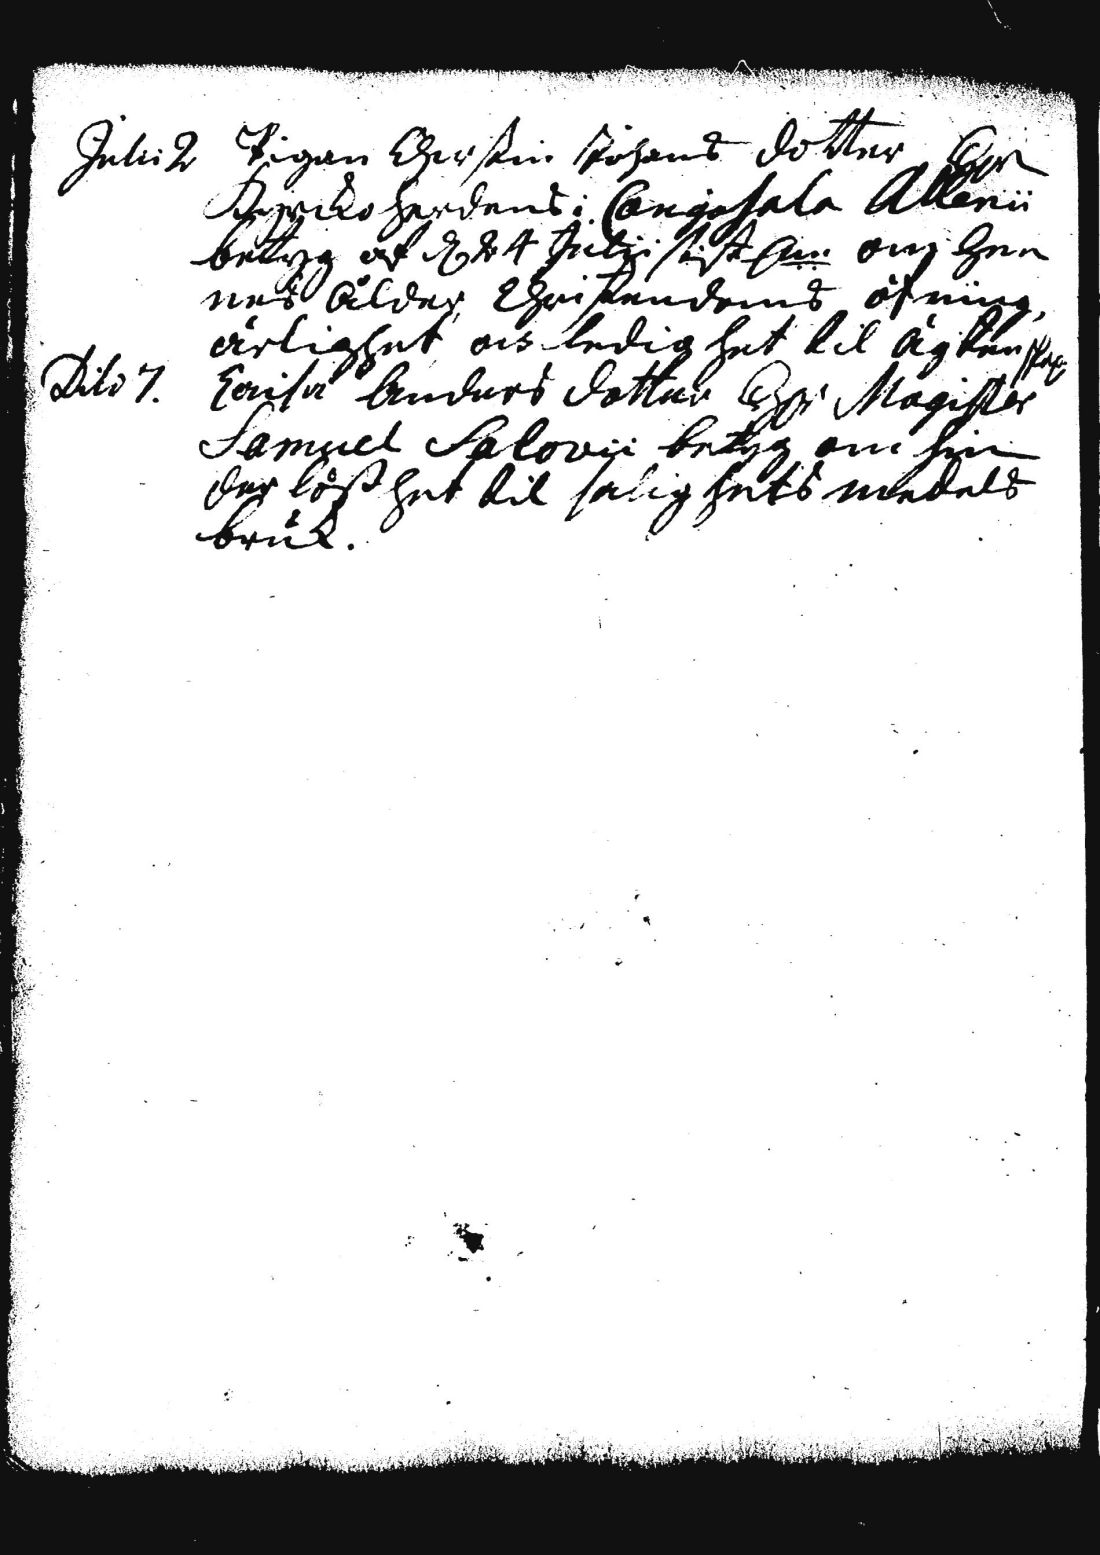 Julii 2 Pigan Cherstin Johans dotter
Kyrckioherdens i Cangasala Allenii
betyg af d 24 Julii sist om hen
nes ålder, Christendoms öfning,
ärlighet ok ledighet til ächtenskap
Dito 7. Caisa Anders dotter Magister
Samuel Salovii betyg om hin
derlösshet til salighets medels
bruk.